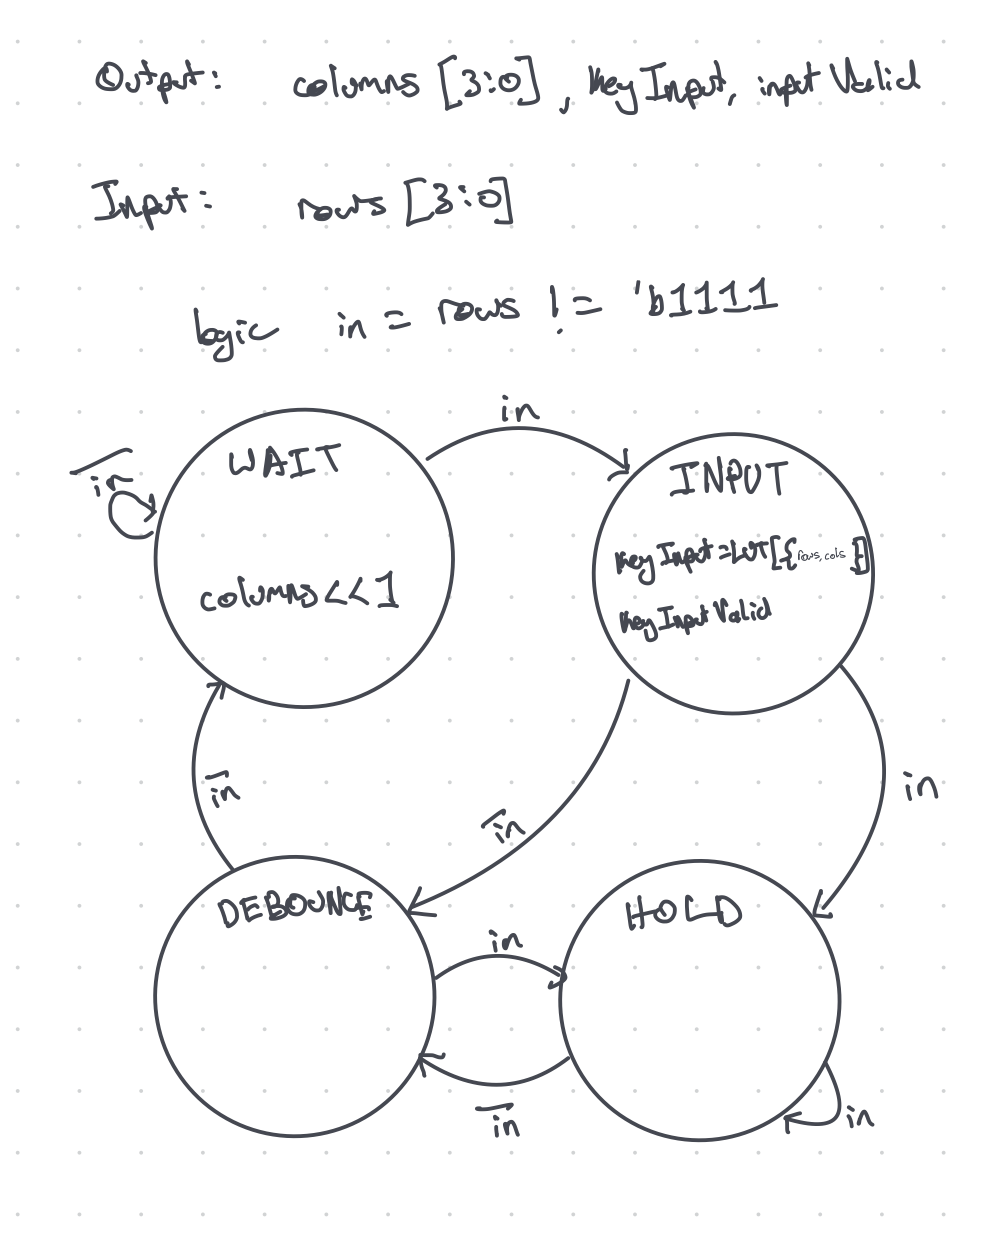 Output: columns [3:0], Key Input, input Valid
Input: rows [3:0]
logic in = rows != 'b1111
in
WAIT
INPUT
i̅n̅
Key Input = LUT[{rows, cols}]
columns<<1
Key Input Valid
i̅n̅
in
i̅n̅
DEBOUNCE
HOLD
in
i̅n̅
in